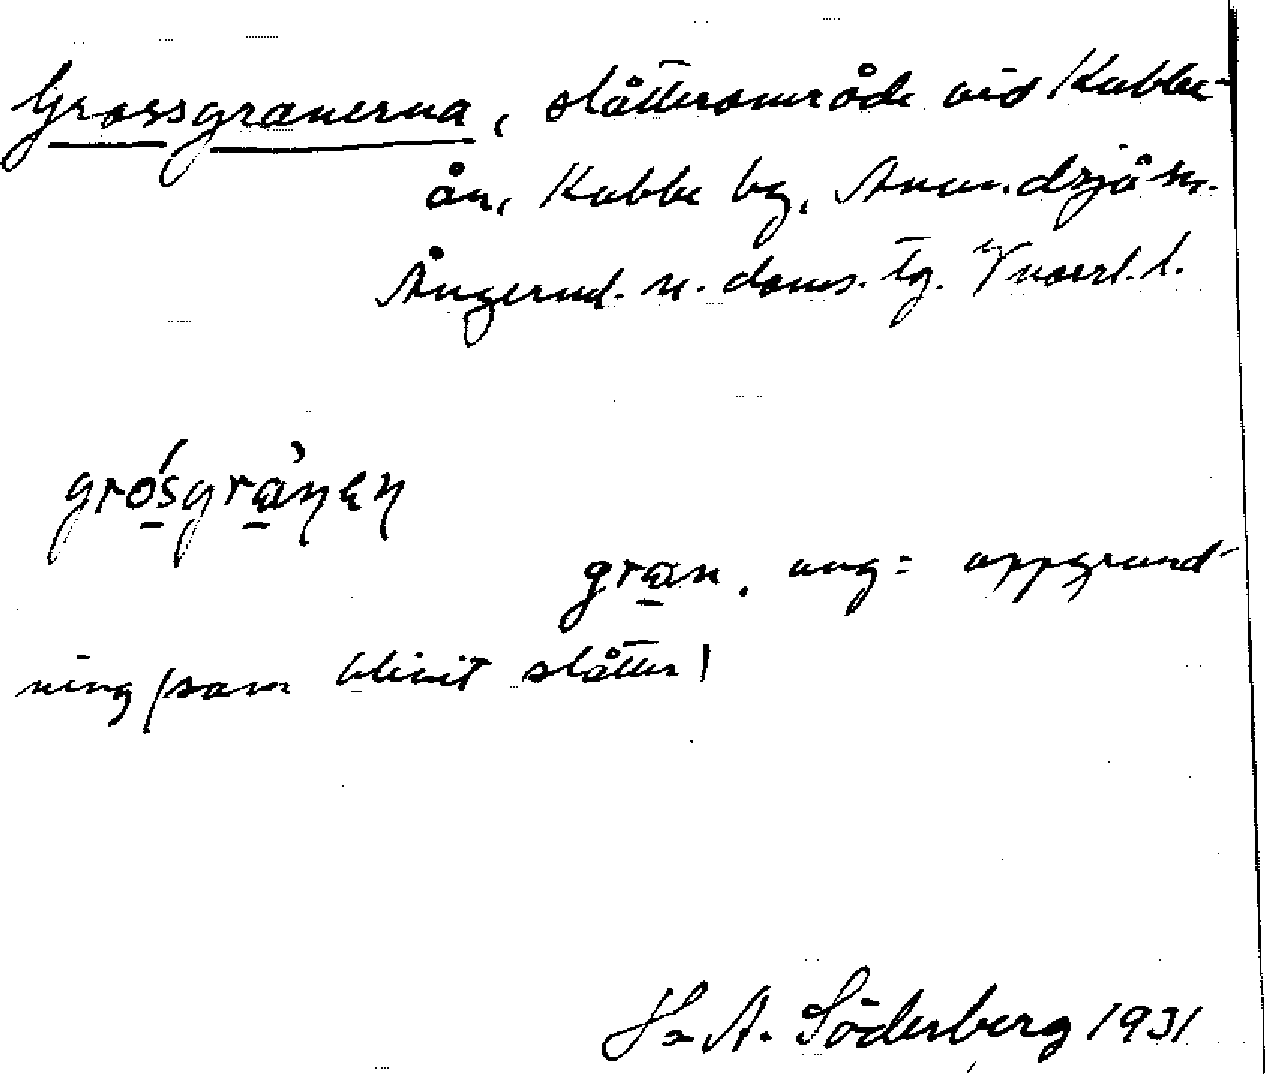 Grossgranerna, slåtterområde vid Kubbe-
ån, Kubbe by, Anundsjö sn.
Ångerml. n. doms. tg. Vnorrl. l.
grósgrànen
gran, ung = uppgrund-
ning (som blivit slåtter)
H. A. Söderberg 1931